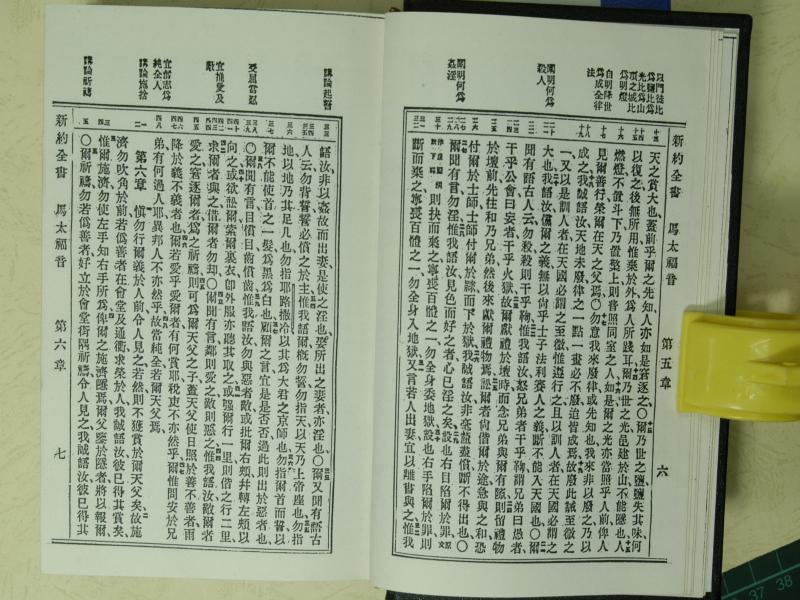 以門徒比
為鹽比為
光比為山
頂之城比
為明燈
自明降世
為成全律
法
闡明何為
殺人
闡明何為
姦淫
新約全書 馬太福音 第五章 六
天之賞大也蓋前乎爾之先知人亦如是窘逐之〇爾乃世之鹽鹽失其味何
以復之後無所用惟棄於外為人所踐耳爾乃世之光邑建於山不能隱也人
燃燈不置斗下乃置檠上則普照同室之人如是爾之光亦當照乎人前俾人
見爾善行榮爾在天之父焉〇勿意我來廢律或先知也我來非以廢之乃以
成之我誠語汝天地未廢律之一點一畫必不廢迨皆成焉故廢此誡至微之
一又以是訓人者在天國必謂之至微惟遵行之且以訓人者在天國必謂之
大也我語汝儻爾之義無以尚乎士子法利賽人之義斷不能入天國也〇爾
聞有語古人云勿殺殺則干乎鞫惟我語汝怒兄弟者干乎鞫謂兄弟曰愚者
干乎公會曰妄者干乎火獄故爾獻禮於壇時而念兄弟與爾有隙則留禮物
於壇前先往和乃兄弟然後來獻爾禮物焉訟爾者尚偕爾於途急與之和恐
付爾於士師士師付爾於隸而下於獄我誠語汝非毫釐盡償斷不得出也〇
爾聞有言勿淫惟我語汝見色而好之者心已淫之矣設也右目陷爾於罪
則抉而棄之寧喪百體之一勿全身委地獄設也右手陷爾於罪則
斷而棄之寧喪百體之一勿全身入地獄又言若人出妻宜以離書與之惟我
講論起誓
受屈當忍
宜推愛及
敵
宜奮志為
純全人
講論施捨
講論祈禱
語汝非以姦故而出妻是使之淫也娶所出之妻者亦淫也〇爾又聞有語古
人云勿背誓誓必償之於主惟我語爾概勿誓勿指天以天乃上帝座也勿指
地以地乃其足几也勿指耶路撒冷以其為大君之京師也勿指爾首而誓以
爾不能使首之一髮為黑為白也顧爾之言宜是是否否過此則出於惡者也
〇爾聞有言目償目齒償齒惟我語汝勿與惡者敵或批爾右頰幷轉左頰以
向之或欲訟爾索爾裏衣卽外服亦聽其取之或强爾行一里則偕之行二里
求爾者與之借爾者勿却〇爾聞有言鄰則愛之敵則惡之惟我語汝敵爾者
愛之窘逐爾者為之祈禱則可為爾天父之子蓋天父使日照於善不善者雨
降於義不義者也爾若愛乎愛爾者有何賞耶稅吏不亦然乎爾惟問安於兄
弟有何過人耶異邦人不亦然乎故當純全若爾天父焉
第六章 愼勿行爾義於人前令人見之若然則不獲賞於爾天父矣故施
濟勿吹角於前若偽善者在會堂及通衢求榮於人我誠語汝彼已得其賞矣
惟爾施濟勿使左手知右手所為俾爾之施濟隱焉爾父鑒於隱者將以報爾
〇爾祈禱勿若偽善者好立於會堂街隅祈禱令人見之我誠語汝彼已得其
新約全書 馬太福音 第六章 七